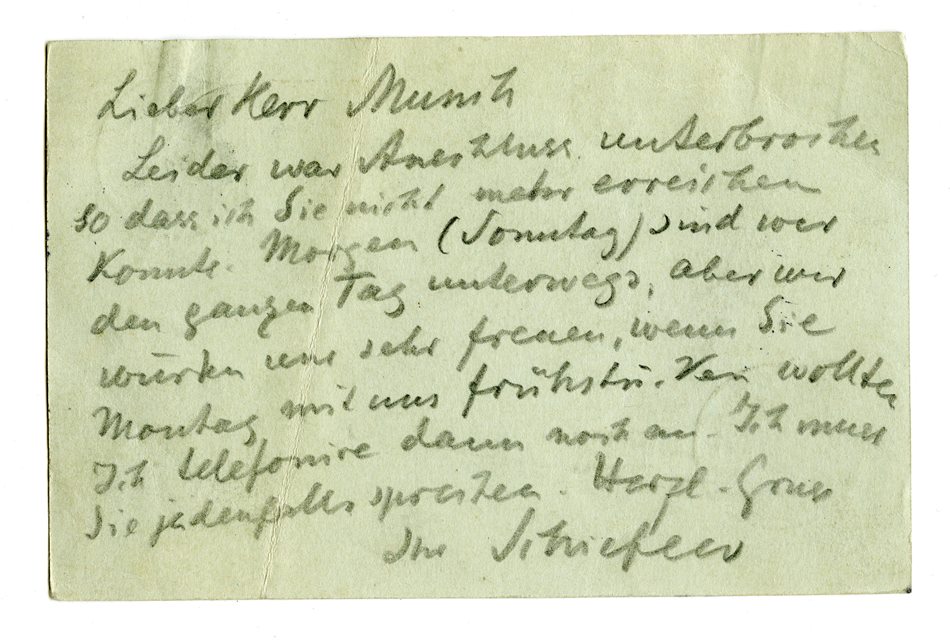 Lieber Herr Munch
Leider war Anschluss unterbrochen
so dass ich Sie nicht mehr erreichen
konnte. Morgen (Sonntag) sind wir
den ganzen Tag unterwegs, aber wir
würden uns sehr freuen, wenn Sie
Montag mit uns frühstü. wollten
Ich telefonire dann noch an. Ich muss
Sie jedenfalls sprechen. Herzl. Gruss
Ihr Schiefler